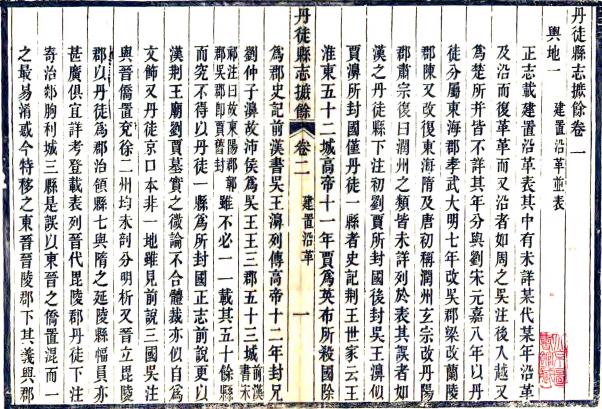 丹徒縣志摭餘卷一
輿地一 建置沿革並表
正志載建置沿革表其中有未詳某代某年沿革
及沿而復革革而又沿者如周之吳注後入越又
為楚所并皆不詳其年分與劉宋元嘉八年以丹
徒分屬東海郡孝武大明七年改吳郡梁改蘭陵
郡陳又改復東海隋及唐初稱潤州玄宗改丹陽
郡肅宗復曰潤州之類皆未詳列於表其誤者如
漢之丹徒縣下注初劉賈所封國後封吳王濞似
賈濞所封國僅丹徒一縣者史記荆王世家云王
淮東五十二城高帝十一年賈為英布所殺國除
丹徒縣志摭餘 卷二 建置沿革 一
為郡史記前漢書吳王濞列傳高帝十二年封兄
劉仲子濞故沛侯為吳王王三郡五十三城前漢書宋
祁注曰故東陽郡鄣郡吳郡卽賈舊封雖不必一一載其五十餘縣
而究不得以丹徒一縣為所封國正志前說更以
漢荆王廟劉賈墓實之徵論不合體裁亦似自為
文飾又丹徒京口本非一地雖見前說三國吳注
與晉僑置兗徐二州均未剖分明析又晉立毘陵
郡以丹徒為郡治領縣七與隋之延陵縣幅員亦
甚廣俱宜詳考登載表列晉代毘陵郡丹徒下注
寄治郯朐利城三縣是誤以東晉之僑置混而一
之最易淆惑今特移之東晉晉陵郡下其義興郡